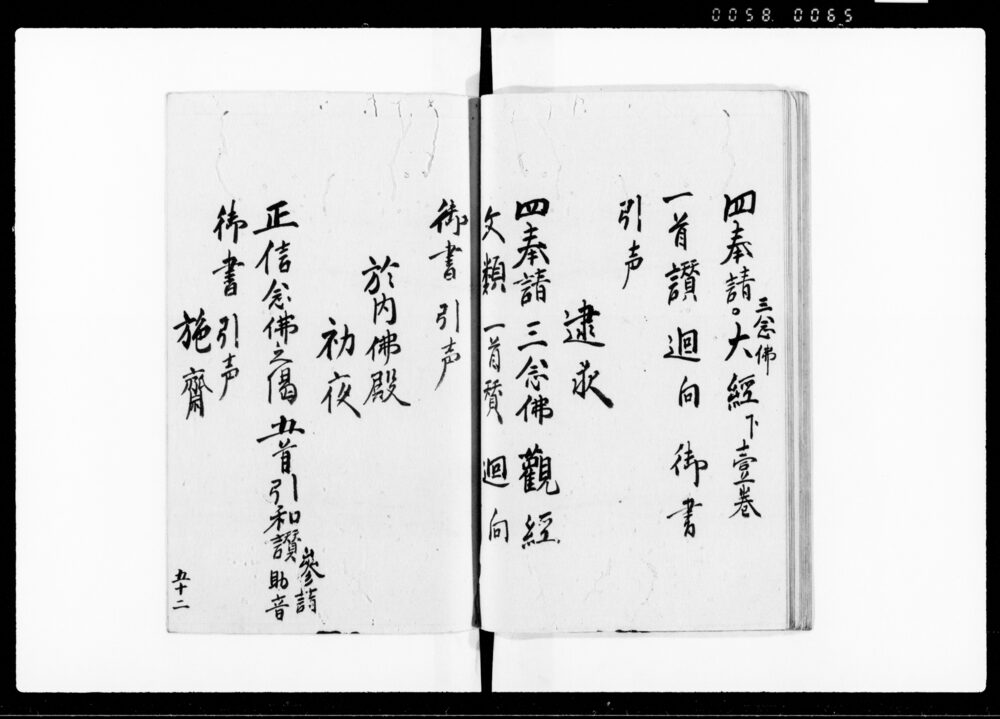 0058. 0065
四奉請。三念佛大經下壹巻
一首讃 迴向 御書
引声
逮夜
四奉請 三念佛 觀經
文類 一首賛 迴向
御書 引声
於内佛殿
初夜
正信念佛之偈 五首引和讃 助音
參詩
御書 引声
施齋
五十二